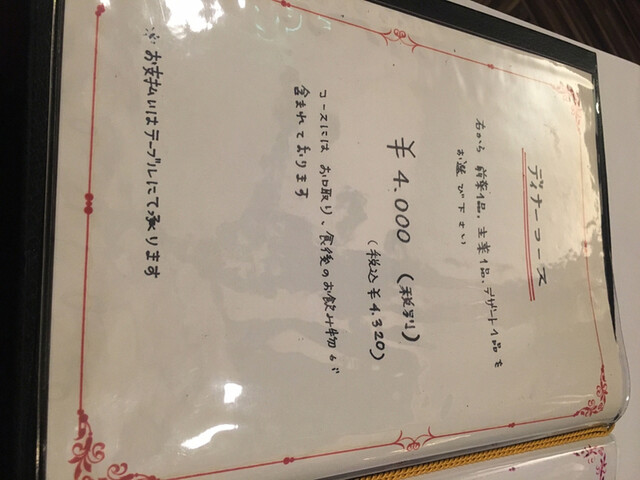 ディナーコース
右から 前菜1品、主菜1品、デザート1品を
お選び下さい
¥4.000(税別)
(税込¥4.320)
コースには お口取り、食後のお飲み物が
含まれております
※お支払いはテーブルにて承ります